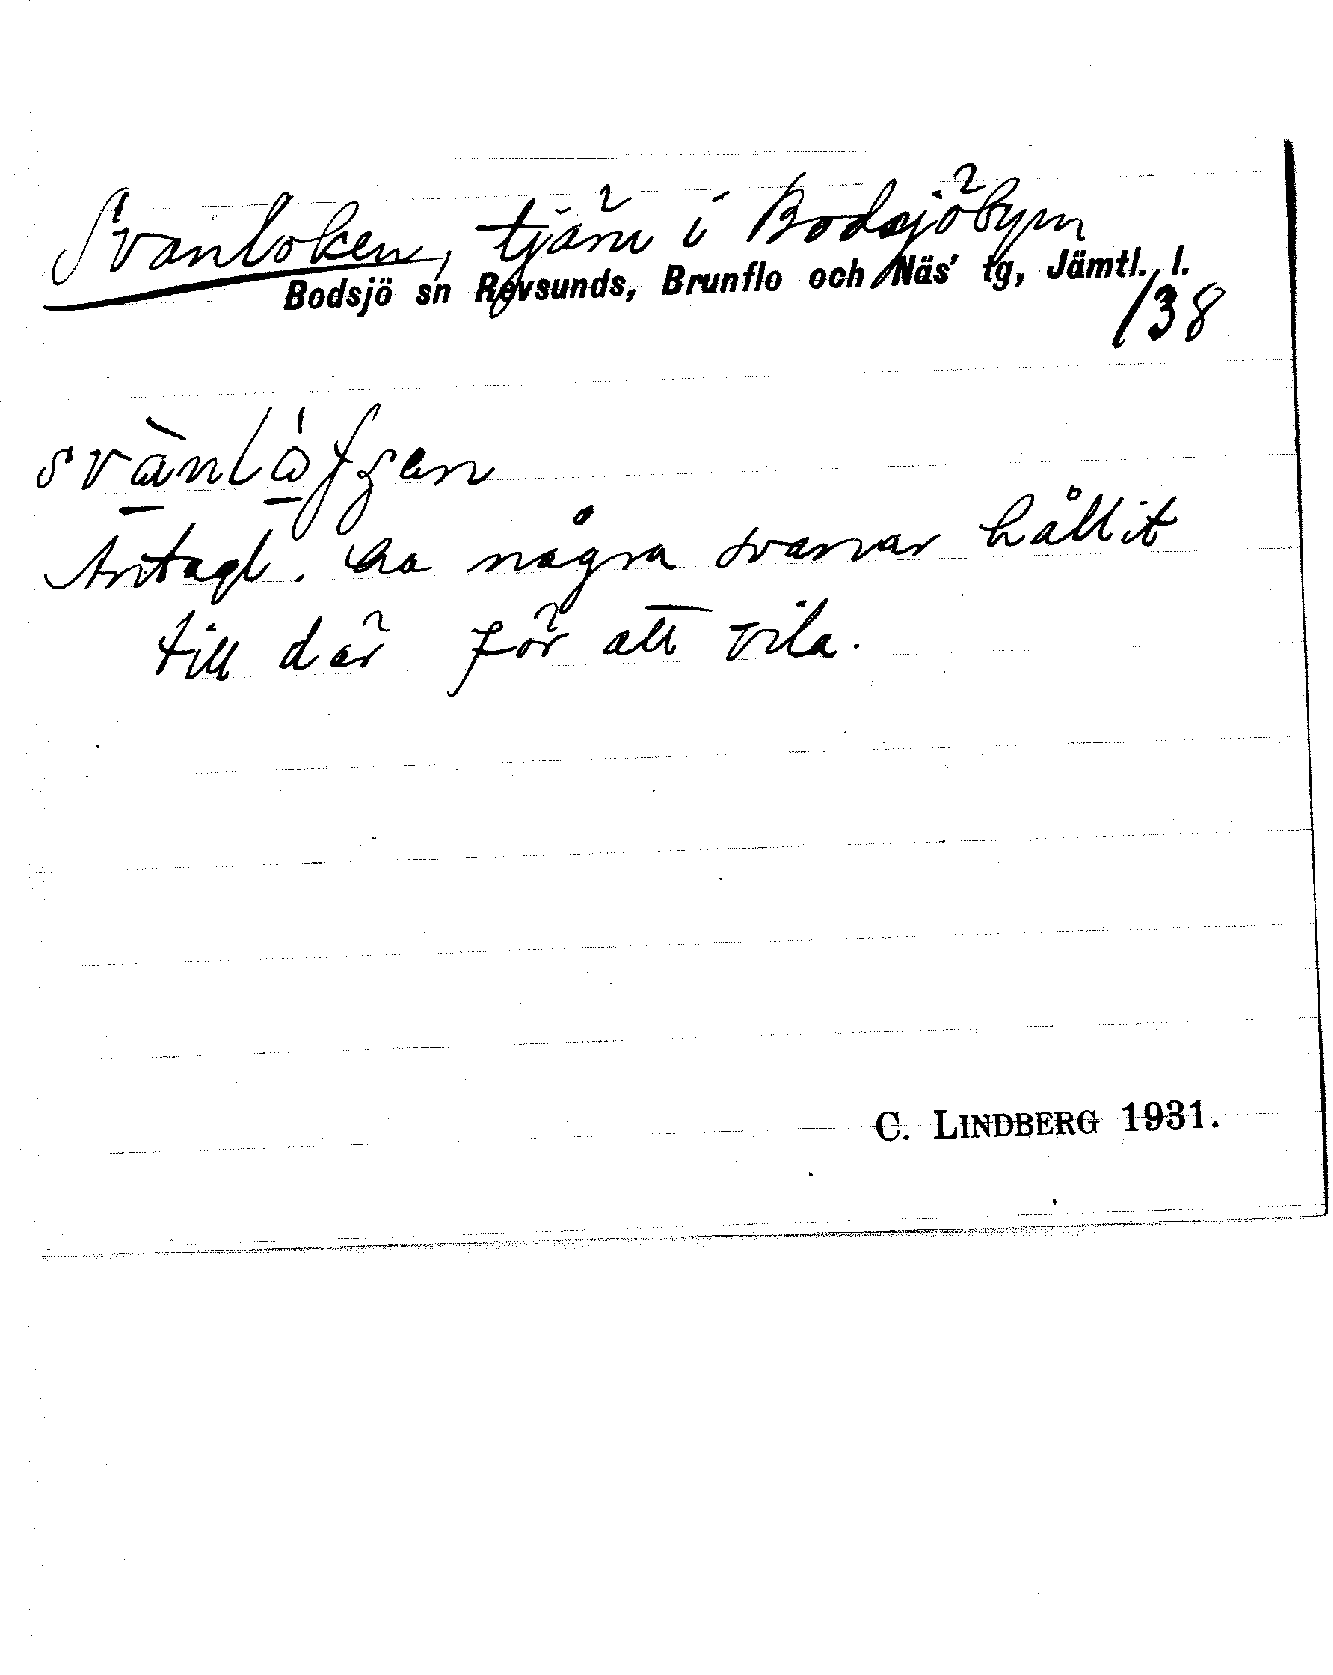 Svanloken, tjärn i Bodsjöbyn
Bodsjö sn Revsunds, Brunflo och Näs' tg, Jämtl. l.
138
Antagl. ha några svanar hållit
till där för att vila.
C. LINDBERG 1931.